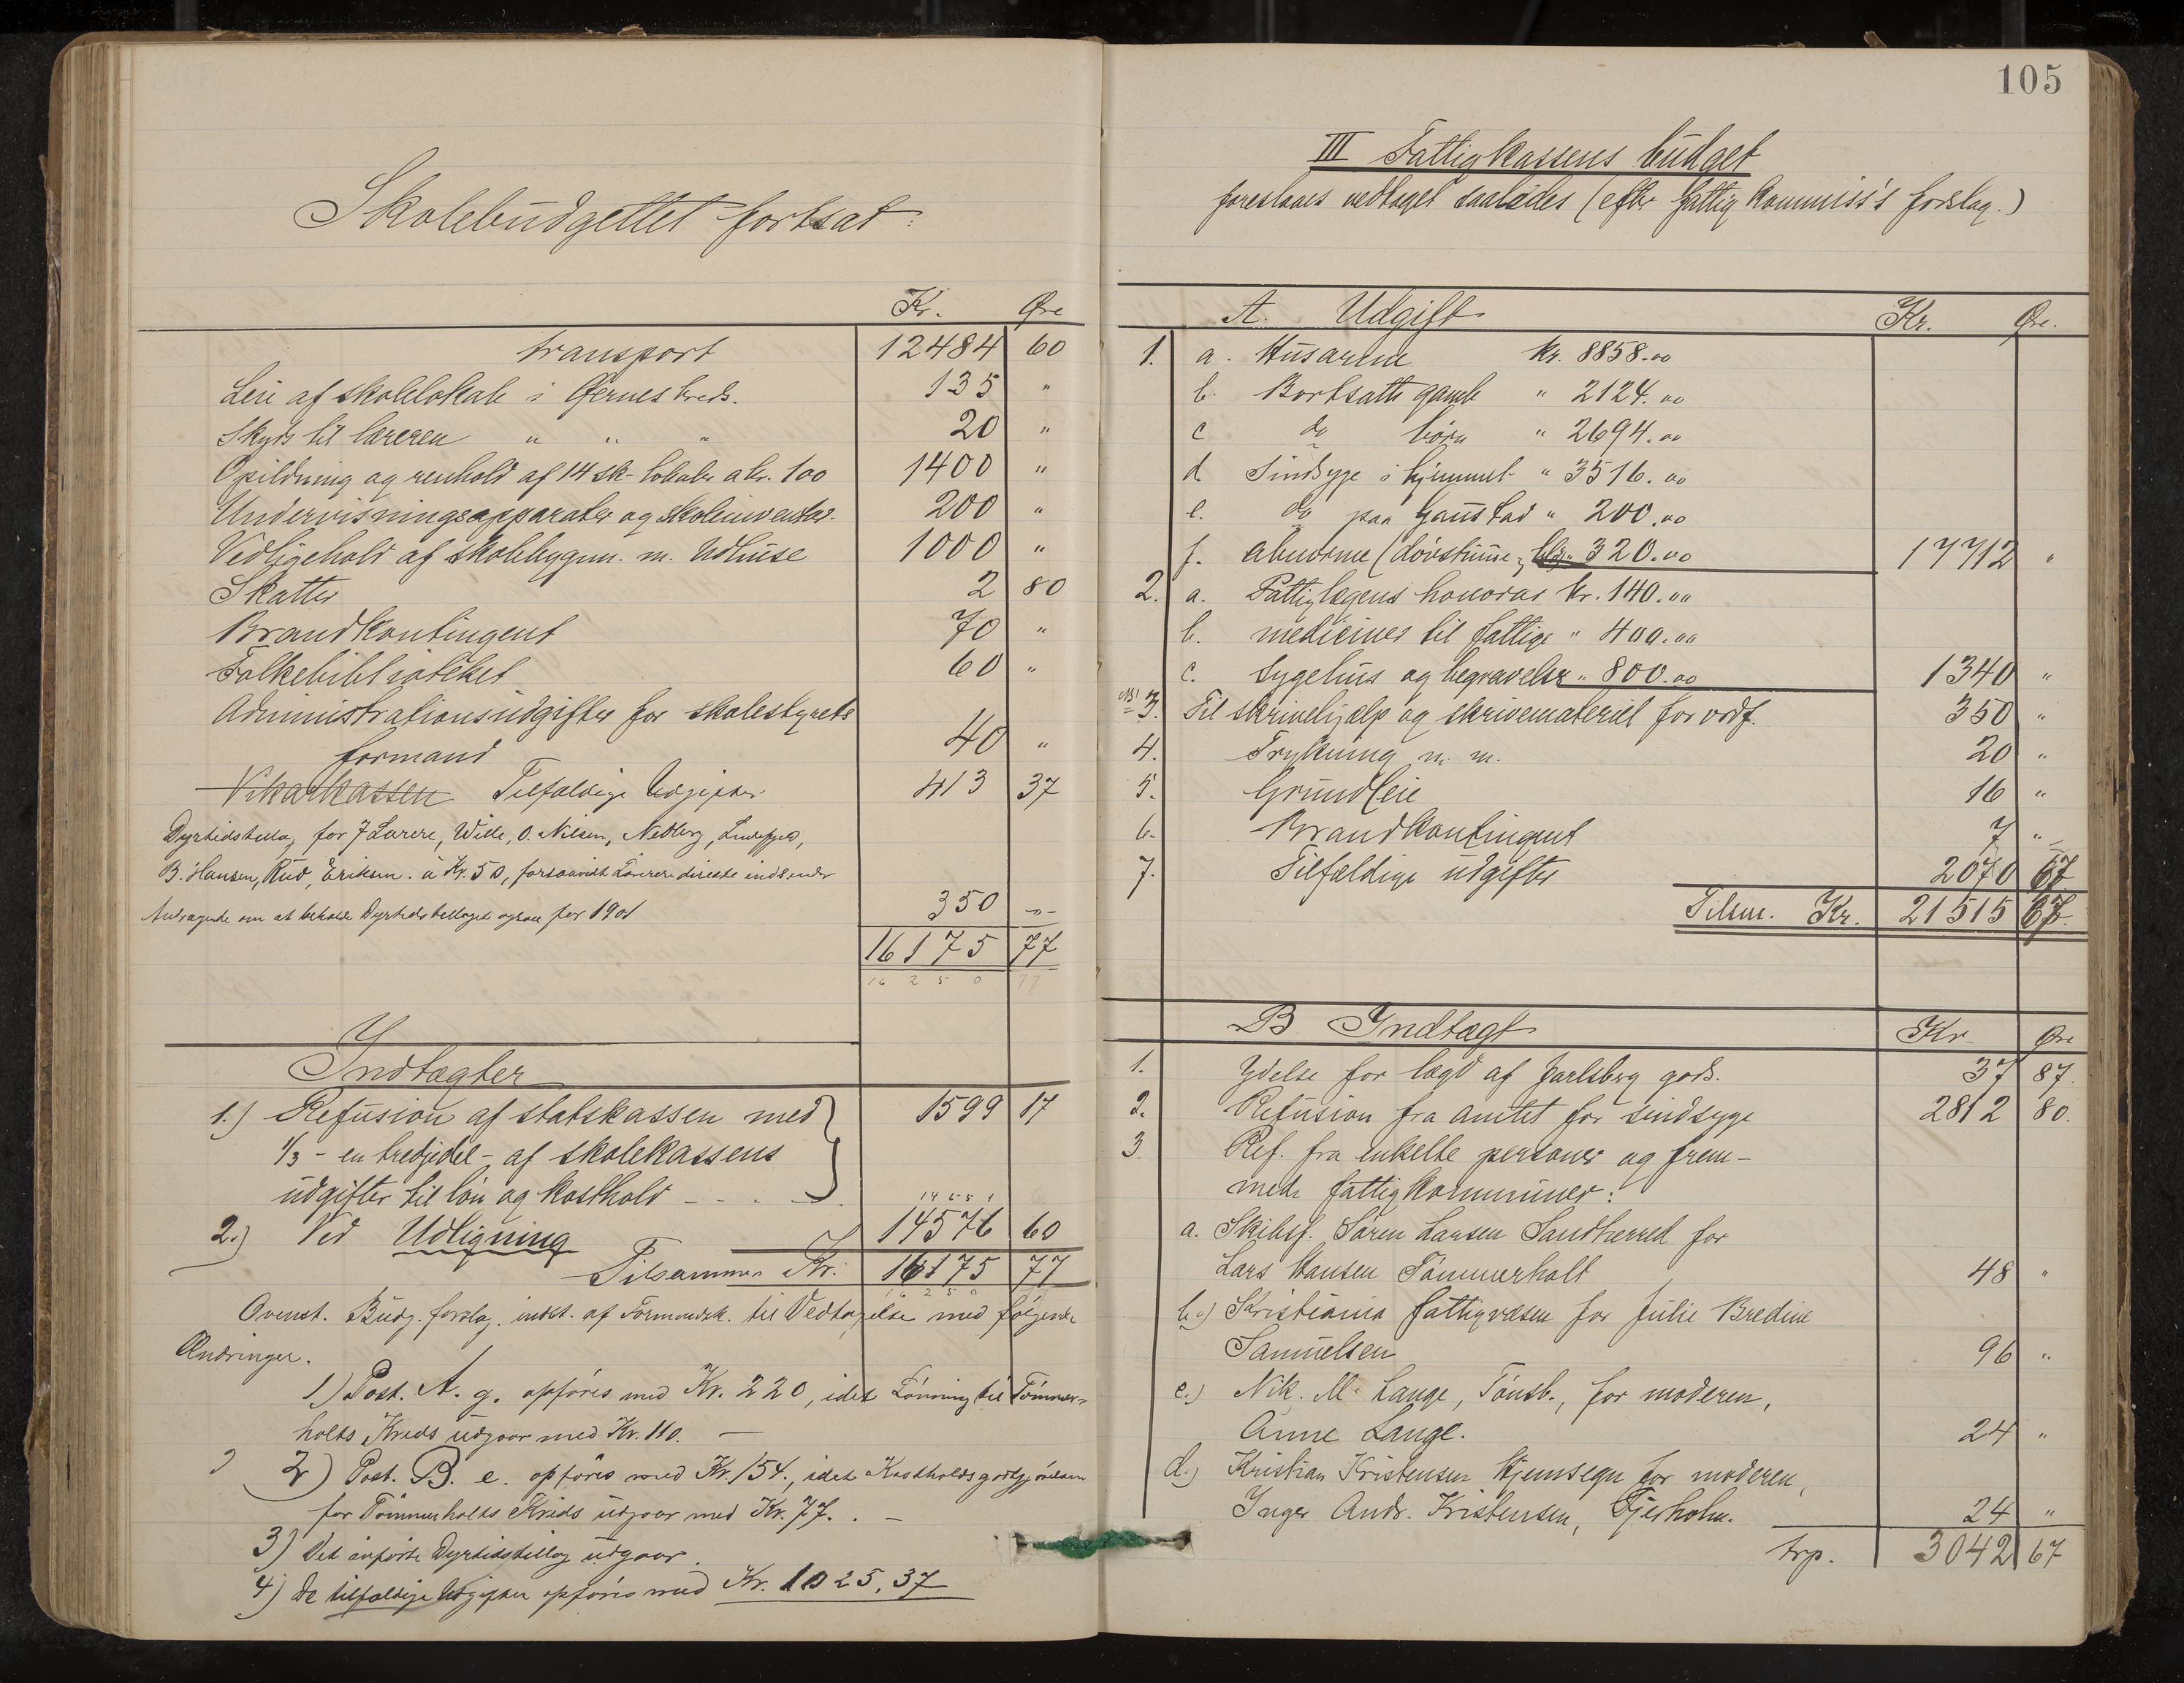 Skolebudgettet fortsat:
Kr. Øre
transport 12484 60
Leie af skolelokale i Gjernes kreds. 135 "
Skyds til læreren " " " 20 "
Opildning og renhold af 14 sk-lokaler a kr. 100 1400 "
Undervisningsapparater og skoleinventar. 200 "
Vedligehold af skolebygnn. m. Udhuse 1000 "
Skatter 2 80
Brandkontingent 70 "
Folkebibliotéket 60 "
Administrationsudgifter for skolestyrets
formand 40 "
Vikarkassen Tilfældige Udgifter 413 37
Dyrtidstillæg for 7 Lærere, Wille, O. Nilsen, Nedberg,
B. Hansen, Rud, Eriksen. á Kr. 50, forsaavidt Lærere direkte indsender
Andragende om at beholde Dyrtidstillæget ogsaa for 1901 350 -"-
16175 77
16 2 5 0 77
Indtægter
1.) Refusion af statskassen med 1599 17
1/3 - en tredjedel - af skolekassens
udgifter til løn og kosthold
2.) Ved Udligning 14576 60
Tilsammen Kr. 16175 77
Ovenst. Budg. forslag indst. af Formandsk. til Vedtagelse med følgende
Ændringer.
1) Post. A. g. opføres med Kr. 220, idet Lønning til Tømmer-
holts Kreds udgaar med Kr. 110. —
2) Post. B. e. opføres med Kr. 154., idet Kostholdsgodtgjørelsen
for Tømmerholts Kreds udgaar med Kr. 77. . —
3) Det anførte Dyrtidstillæg udgaar.
4) De tilfældige Udgifter opføres med Kr. 1025,37
105
III Fattigkassens budget
foreslaaes vedtaget saaledes (efter fattigkommiss's forslag.)
A. Udgift Kr. Øre.
1. a. Husarme kr. 8858.00
b. Bortsatte gamle " 2124.00
c do børn " 2694.00
d Sindsyge i hjemmet " 3516.00
e. do paa Gaustad " 200.00
f. abnorme (døvstumme, 320.00 17712 "
2. a. Fattiglægens honorar kr. 140.00
b. medeciner til fattige " 400.00
c. Sygehus og begravelser " 800.00 1340 "
3. Til skrivehjælp og skrivemateriel for ordf. 350 "
4. Trykning m. m. 20 "
5. Grundleie 16 "
6. Brandkontingent 7 "
7. Tilfældige udgifter 2070 67
Tilsm. Kr. 21515 67.
B Indtægt Kr Øre
1. Ydelse for lægd af Jarlsberg gods. 37 87.
2. Refusion fra amtet for sindsyge 2812 80.
3. Ref. fra enkelte personer og frem-
mede fattigkommuner:
a. Skibsf. Søren Larsen Sandherred for
Lars Hansen Tømmerholt 48 "
b.) Kristiania fattigvæsen for Julie Bredine
Samuelsen 96 "
c.) Nik. M. Lange, Tønsb., for moderen,
Anne Lange. 24 "
d.) Kristian Kristensen Hjemsegn for moderen,
Inger Andr. Kristensen, Gjerholm. 24 "
trp. 3042 67